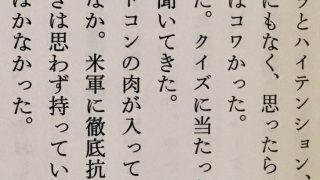 とハイテンション、
にもなく、思ったら
はコワかった。
た。クイズに当たっ
聞いてきた。
ドコンの肉が入って
なか。米軍に徹底抗
きは思わず持ってい
はかなかった。